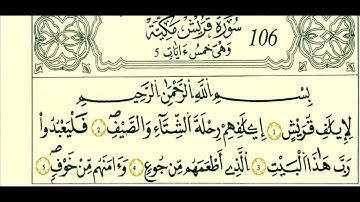 سُورَةُ قُرَيْشٍ مَكِّيَّة 106
وَهِيَ خَمْسُ ءَايَاتٍ 5
بِسْمِ اللَّهِ الرَّحْمَٰنِ الرَّحِيمِ
لِإِيلَٰفِ قُرَيْشٍ 1 إِۦلَٰفِهِمْ رِحْلَةَ الشِّتَآءِ وَالصَّيْفِ 2 فَلْيَعْبُدُوا
رَبَّ هَٰذَا الْبَيْتِ 3 الَّذِے أَطْعَمَهُم مِّن جُوعٍ 4 وَءَامَنَهُم مِّنْ خَوْفٍ 5